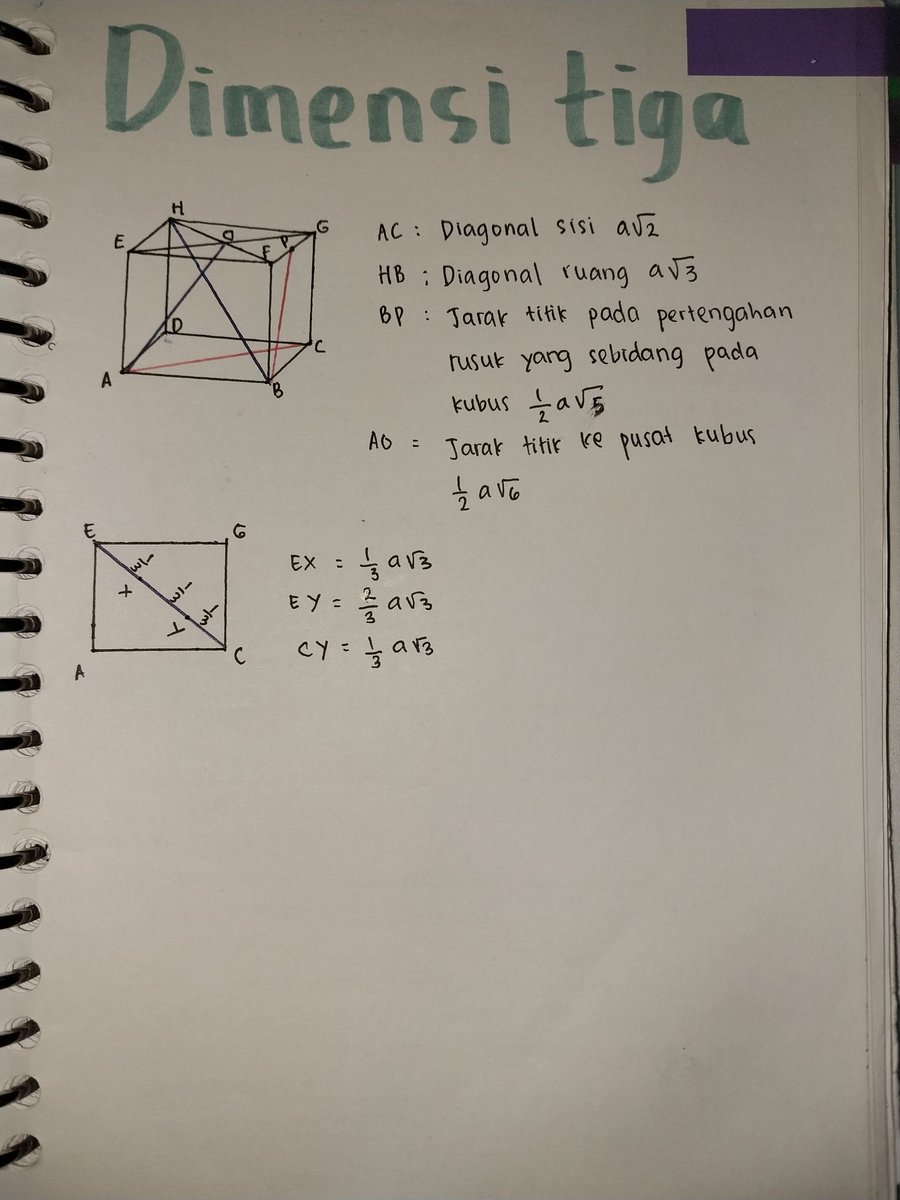 Dimensi tiga
H
E
O
F
P
G
D
C
A
B
AC : Diagonal sisi a√2
HB : Diagonal ruang a√3
BP : Jarak titik pada pertengahan
rusuk yang sebidang pada
kubus 1/2 a√5
AO = Jarak titik ke pusat kubus
1/2 a√6
E
G
1/3
X
1/3
1/3
Y
A
C
EX = 1/3 a√3
EY = 2/3 a√3
CY = 1/3 a√3